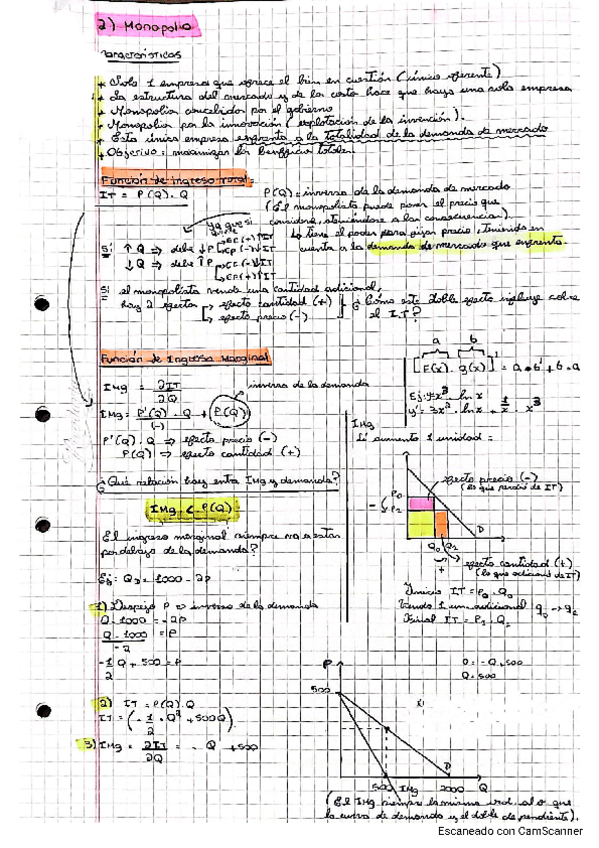 2) Monopolio
Características
* Solo 1 empresa que ofrece el bien en cuestión (único oferente)
* La estructura del mercado y de los costos hace que haya una sola empresa
* Monopolio concedido por el gobierno
* Monopolio por la innovación (explotación de la invención).
* Esta única empresa enfrenta a la totalidad de la demanda de mercado
* Objetivo: maximizar los beneficios totales.
Función de ingreso total:
IT = P(Q) · Q
P(Q) = inversa de la demanda de mercado
(El monopolista puede poner el precio que
considere, ateniéndose a las consecuencias).
Lo tiene el poder para fijar precio, teniendo en
cuenta a la demanda de mercado que enfrenta.
ya que si
Si ↑Q ⇒ debe ↓P
EC (+) ↑IT
EP (-) ↓IT
↓Q ⇒ debe ↑P
EC (-) ↓IT
EP (+) ↑IT
Si el monopolista vende una cantidad adicional,
hay 2 efectos
efecto cantidad (+)
efecto precio (-)
¿Cómo este doble efecto influye sobre
el IT?
Función de Ingreso Marginal
IMg = ∂IT
∂Q
inversa de la demanda
IMg = P'(Q) · Q + P(Q)
(-)
P'(Q) · Q ⇒ efecto precio (-)
P(Q) ⇒ efecto cantidad (+)
¿Qué relación hay entre IMg y demanda?
IMg < P(Q)
El ingreso marginal siempre va a estar
por debajo de la demanda?
Ej: QD = 1000 - 2P
1) Despejo P ⇒ inversa de la demanda
Q - 1000 = -2P
Q - 1000 = P
-2
-1 Q + 500 = P
2
2) IT = P(Q) · Q
IT = (-1 · Q² + 500Q)
2
3) IMg = ∂IT = - Q + 500
∂Q
a b
[F(x) · g(x)]' = a · b' + b · a
Ej: y = x³ · ln x
y' = 3x² · ln x + 1 · x³
x
IMg
Si aumento 1 unidad =
efecto precio (-)
(lo que perdió de IT)
P0
P2
D
Q0 Q2
+
efecto cantidad (+)
(lo que adicioné de IT)
Inicio IT = P0 · Q0
Vendo 1 un. adicional q0 → q2
Final IT = P1 · Q2
0 = -Q + 500
Q = 500
P
500
D
500 IMg
Q
(El IMg siempre la misma ord. al o que
la curva de demanda y el doble de pendiente).
Escaneado con CamScanner